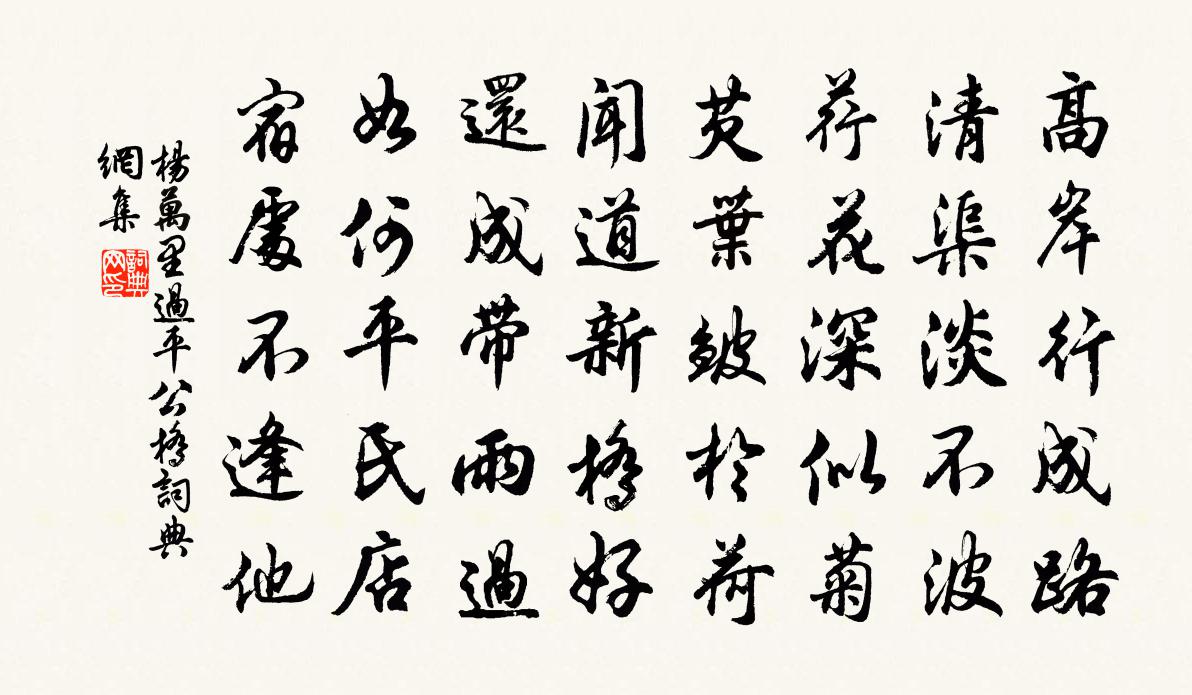 高岸行成路
清渠淡不波
荇花深似菊
芡葉皺於荷
聞道新橋好
還成帶雨過
如何平氏店
宿處不逢他
楊萬里過平公橋詞典
網集
詞典
网印